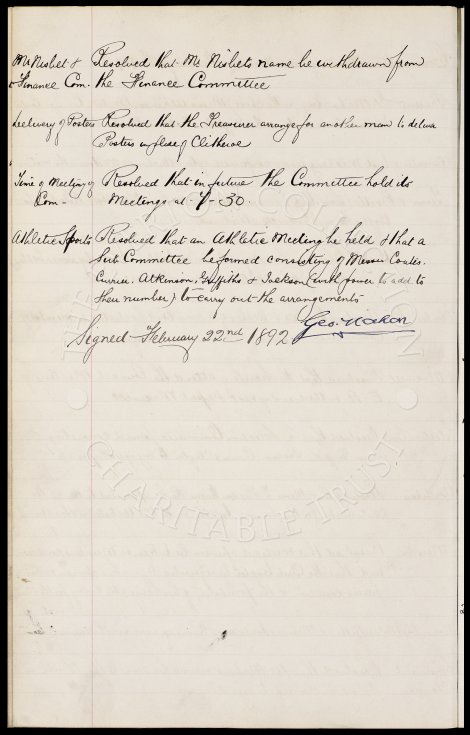 Mr Nisbet & Resolved that Mr Nisbets name be withdrawn from
Finance Com. the Finance Committee
Delivery of Posters Resolved that the Treasurer arrange for another man to deliver
Posters in place of Clitheroe
Time of Meeting of Resolved that in future the Committee hold its
Com- Meetings at 7-30.
Athletic Sports Resolved that an Athletic Meeting be held & that a
Sub Committee be formed consisting of Messrs Coates,
Currie, Atkinson, Griffiths & Jackson (with power to add to
their number) to carry out the arrangements
Signed February 22nd 1892 Geo. Mahon
THE COLLECTION
CHARITABLE TRUST